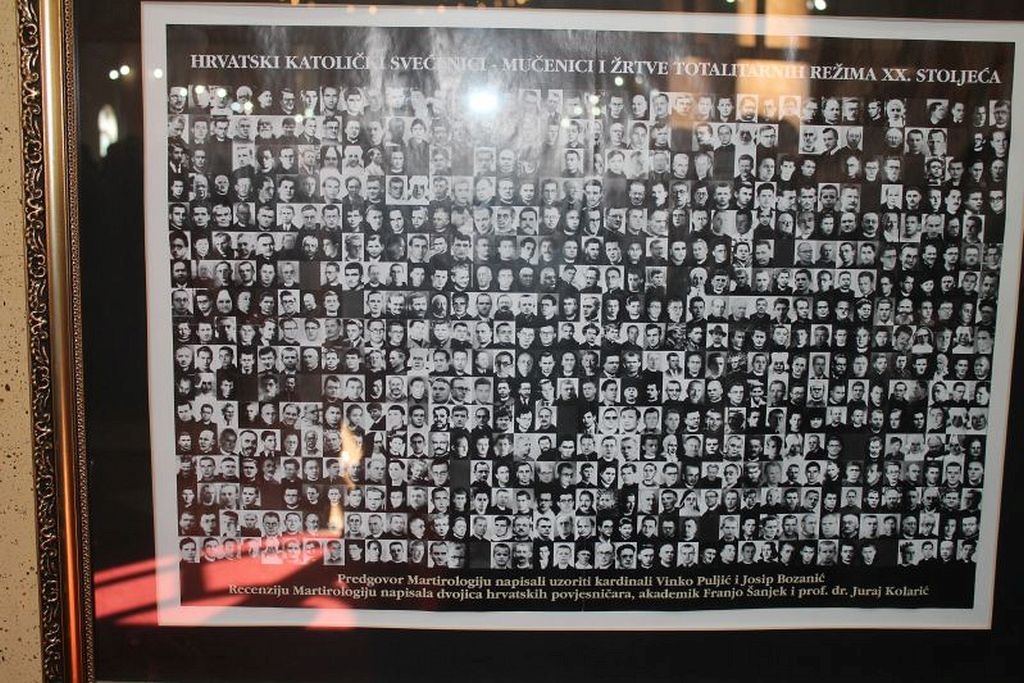 HRVATSKI KATOLIČKI SVEĆENICI - MUČENICI I ŽRTVE TOTALITARNIH REŽIMA XX. STOLJEĆA
Predgovor Martirologiju napisali uzoriti kardinali Vinko Puljić i Josip Bozanić
Recenziju Martirologiju napisala dvojica hrvatskih povjesničara, akademik Franjo Šanjek i prof. dr. Juraj Kolarić